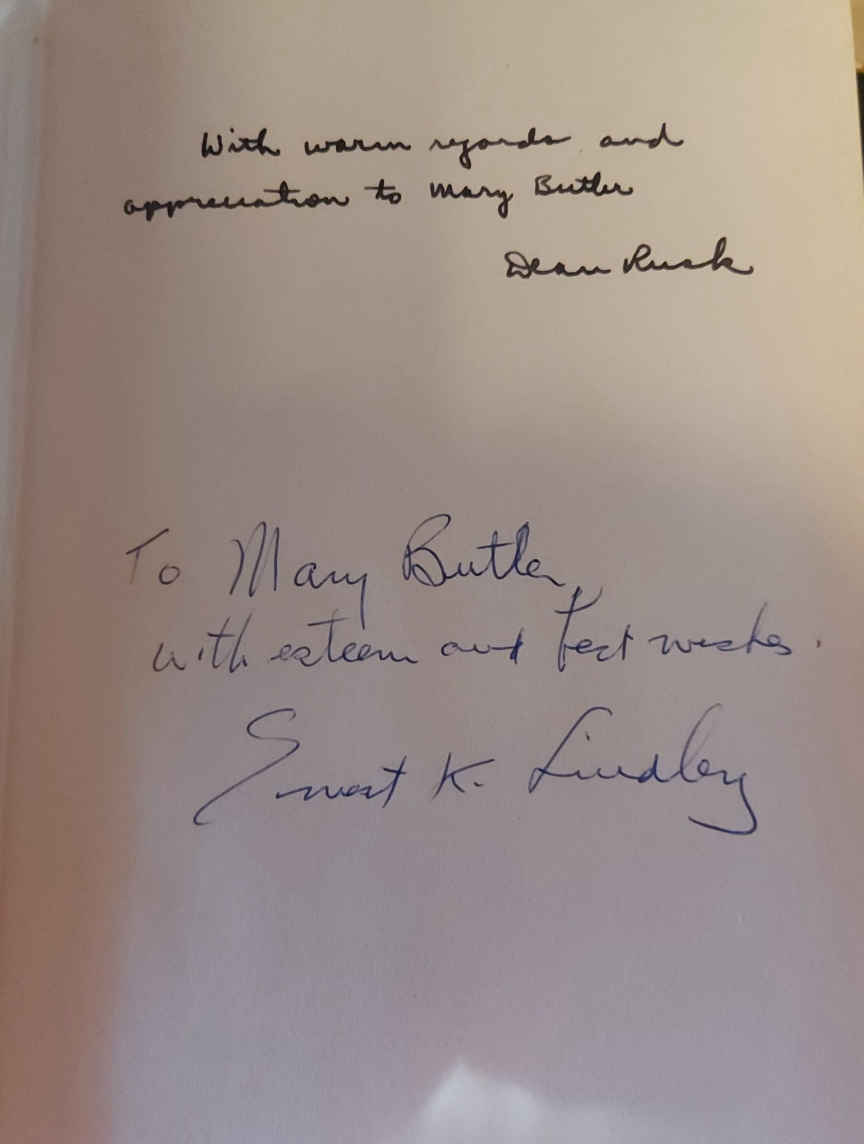 With warm regards and
appreciation to Mary Butler
Dean Rusk
To Mary Butler,
with esteem and best wishes.
Ernest K. Lindley